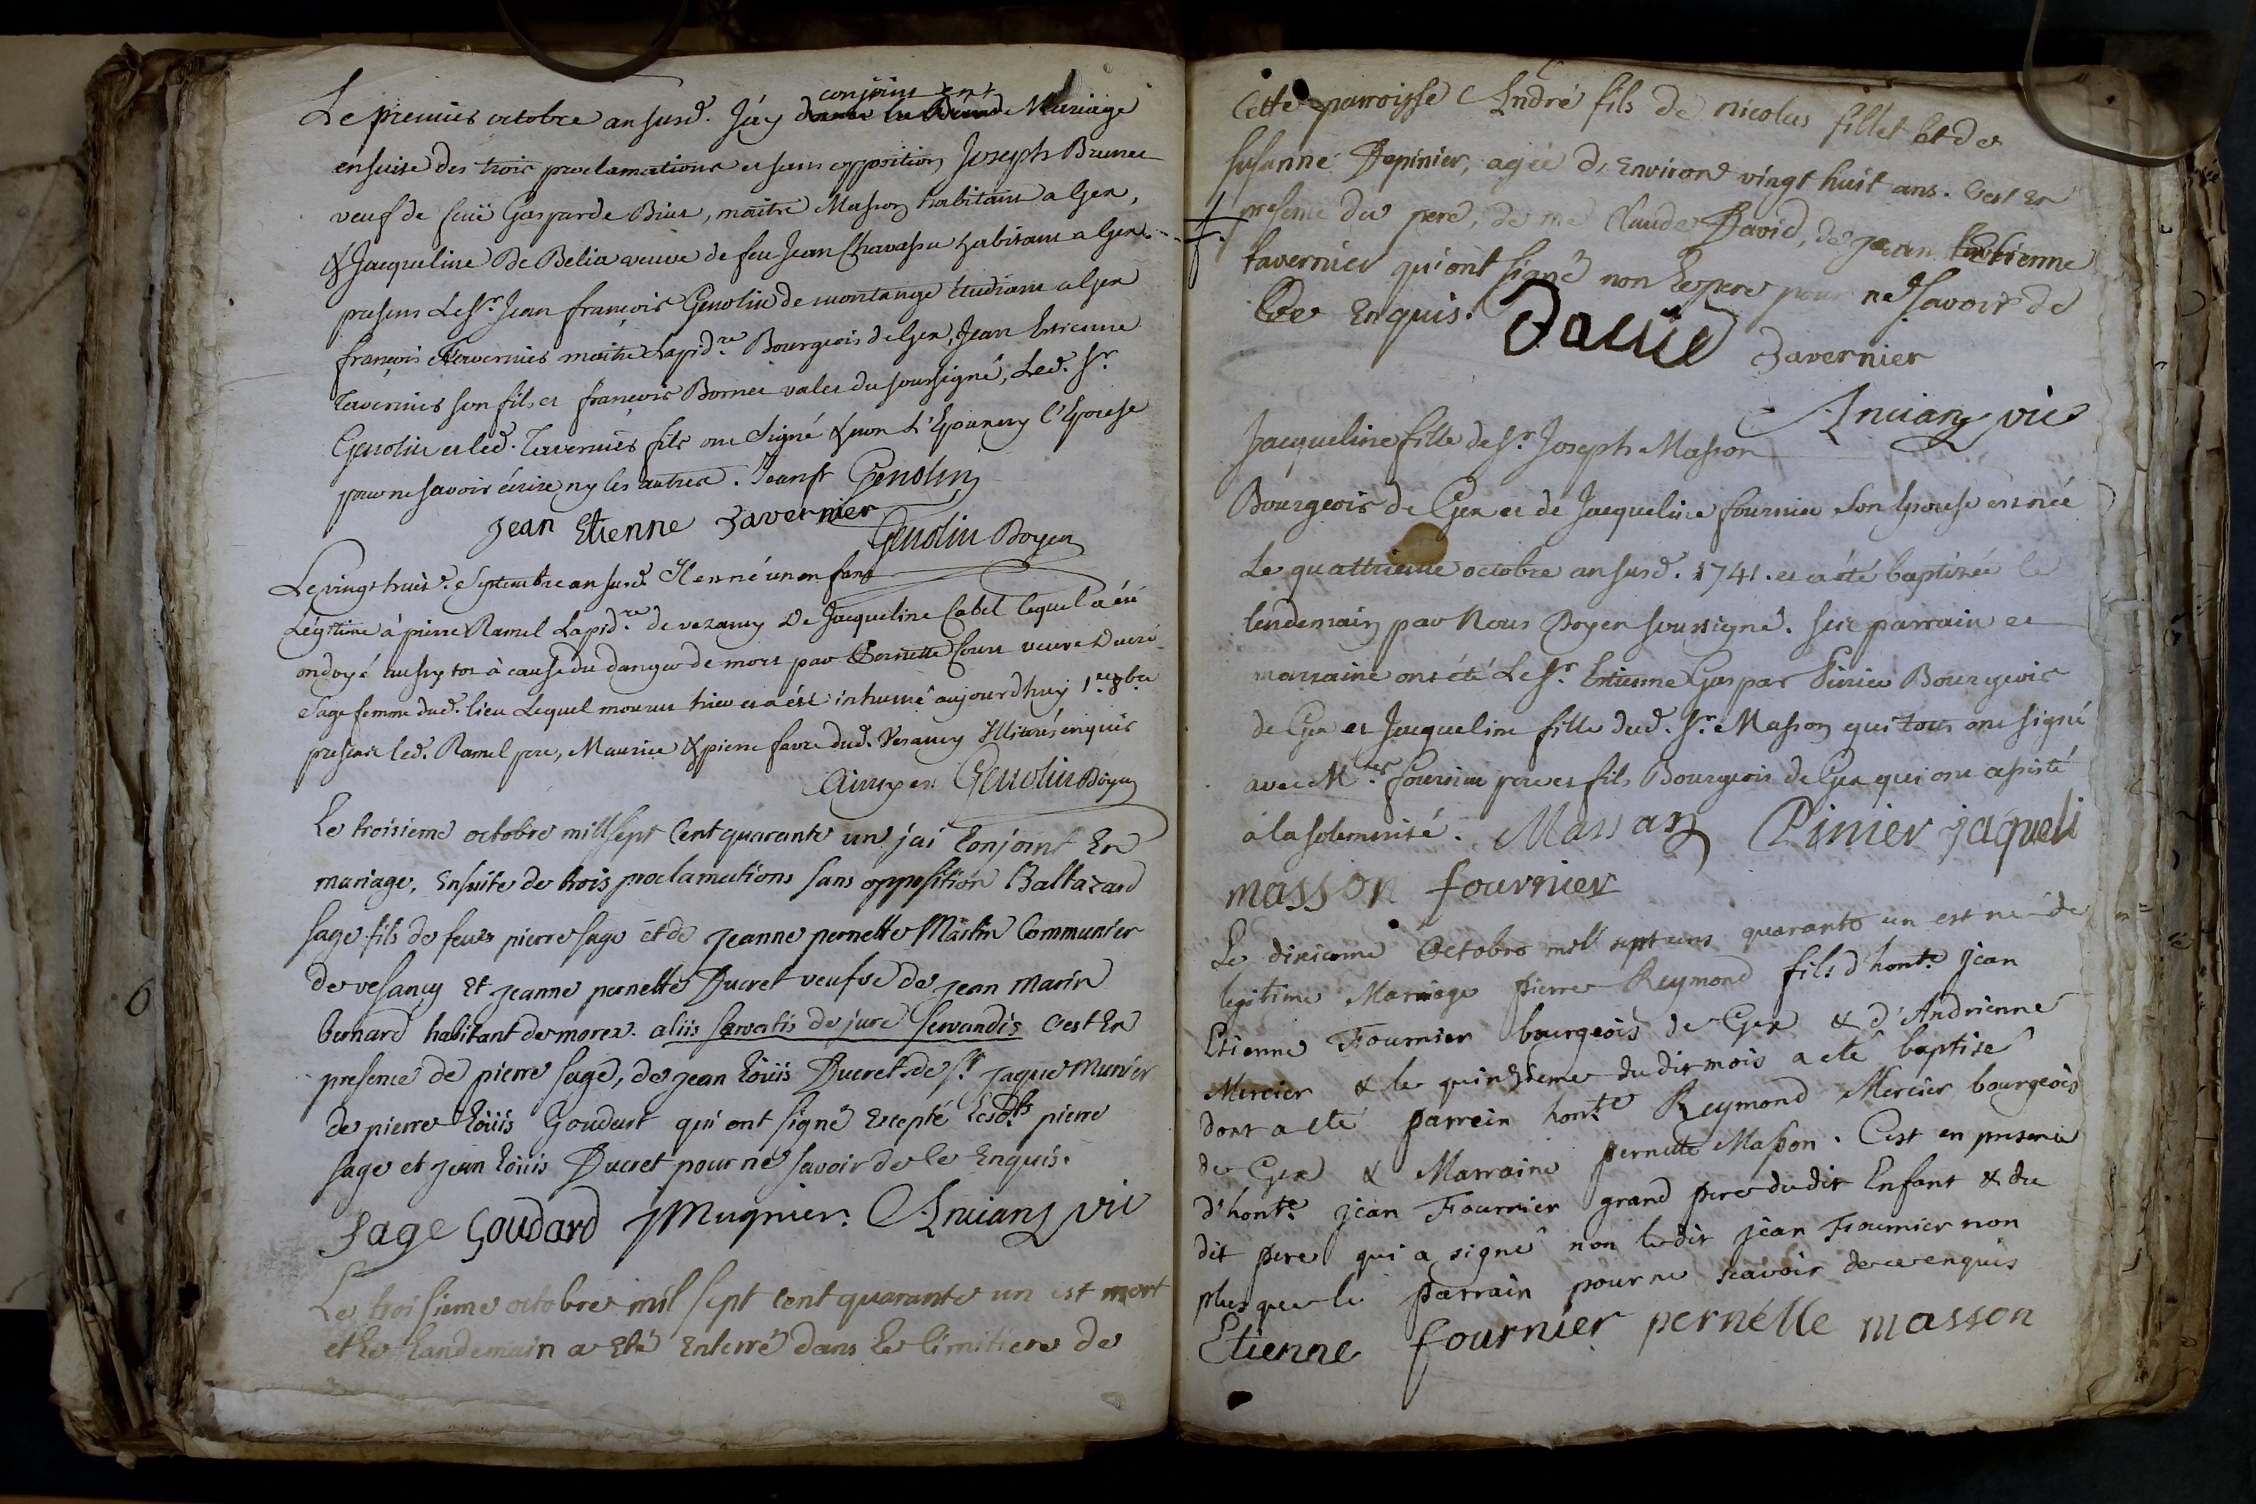 conjoint en
Le premier octobre an susd. J'ay donné la Bened de Mariage
ensuite des trois proclamations et sans opposition Joseph Brunet
veuf de feuë Gasparde Biut, maître Masson habitant a Gex,
& Jacqueline De Belia veuve de feu Jean Chavassu habitant a Gex.
presens Le Sr. Jean françois Genolin de montange etudiant a Gex
françois Tavernier maître Lapidre. Bourgeois de Gex, Jean Estienne
Tavernier son fils et françois Bornet valet du soussigné, Led. Sr.
Genolin et led. Tavernier fils ont signé & non L'Epoux ny l'Epouse
pour ne savoir écrire ny les autres. Jean fr Genolin
Jean Etienne Tavernier
Genolin Doyen
Le vingt huit. Septembre an susd. Il est né un enfant
Légitime à pierre Ramel Lapidre. de vezancy & de Jacqueline Cabel lequel a été
ondoyé aussytot à cause du danger de mort par Pernette Court veuve Ducré
Sage femme dud. lieu Lequel mourut hier et a été inhumé aujourdhuy 1er. 8bre
presens led. Ramel pere, Maurice & pierre favre dud. Vesancy Illiterés enquis
Ainsy est Genolin Doyen
Le troisieme octobre mill sept Cent quarante un j'ai Conjoint En
mariage, Ensuite de trois proclamations sans opposition Baltazard
Sage fils de feu pierre sage et de jeanne pernette Martin Communier
de vesancy Et jeanne pernette Ducret veufve de jean marin
bernard habitant de morex. aliis servatis de jure servandis C'est En
presence de pierre sage, de jean loüis Ducret de Sr. jaque Munier
de pierre loüis Goudart qui ont signé Excepté lesdts pierre
sage et jean loüis Ducret pour ne savoir de ce Enquis.
Sage Goudard J Mugnier. Anciany vic
Le troisieme octobre mil sept cent quarante un est mort
et le landemain a Eté Enterré dans le cimitiere de
Cette parroisse André fils de nicolas fillet et de
Susanne Depinier, agée d'Environ vingt huit ans. C'est En
presence du pere, de me Claude David, de jean Estienne
tavernier qui ont signé non le pere pour ne savoir de
Ce Enquis. David
Tavernier
Anciany vic
Jacqueline fille de Sr. Joseph Masson
Bourgeois de Gex et de Jacqueline fournier son Epouse est née
Le quattrieme octobre an susd. 1741. et a été baptisée le
lendemain par Nous Doyen soussigné. Ses parrain et
marraine ont été Le Sr. Estienne Gaspar Pinier Bourgeois
de Gex et Jacqueline fille dud. Sr. Masson qui tous ont signé
avec Mrs. fournier pere et fils Bourgeois de Gex qui ont assisté
à la solemnité. Masson Pinier jaqueli
masson fournier
Le dixieme Octobre mil sept cens quarante un est né de
legitime Mariage pierre Reymond fils d'honte. jean
Etienne Fournier bourgeois de Gex & d'Andrienne
Mercier & le quinzieme du dit mois a eté baptisé
dont a eté parrein honte. Reymond Mercier bourgeois
de Gex & Marraine pernette Masson. C'est en presence
d'honte. jean Fournier grand pere du dit Enfant & du
dit pere qui a signé non le dit jean Fournier non
plus que le parrain pour ne scavoir de ce enquis
Etienne fournier pernélle masson